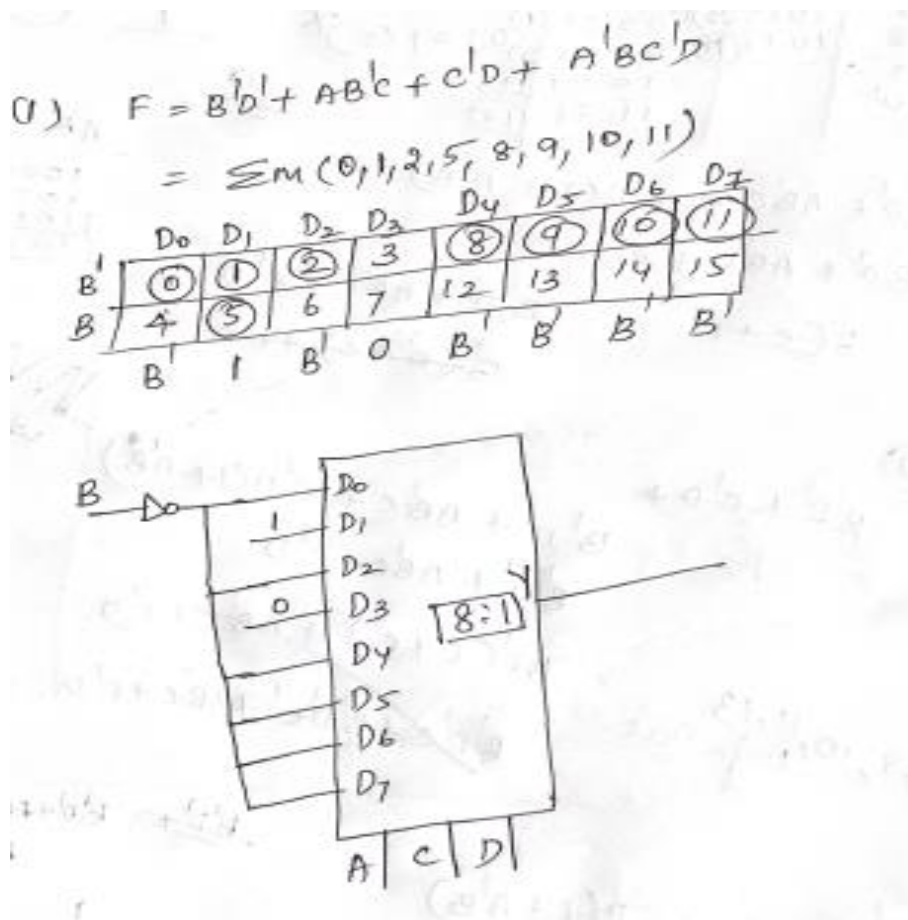 (1). F = B'D' + AB'C + C'D + A'BC'D
= Σm(0,1,2,5,8,9,10,11)
D0 D1 D2 D3 D4 D5 D6 D7
B' 0 1 2 3 8 9 10 11
B 4 5 6 7 12 13 14 15
B' 1 B' 0 B' B' B' B'
B D0
1 D1
D2
0 D3 8:1 Y
D4
D5
D6
D7
A C D